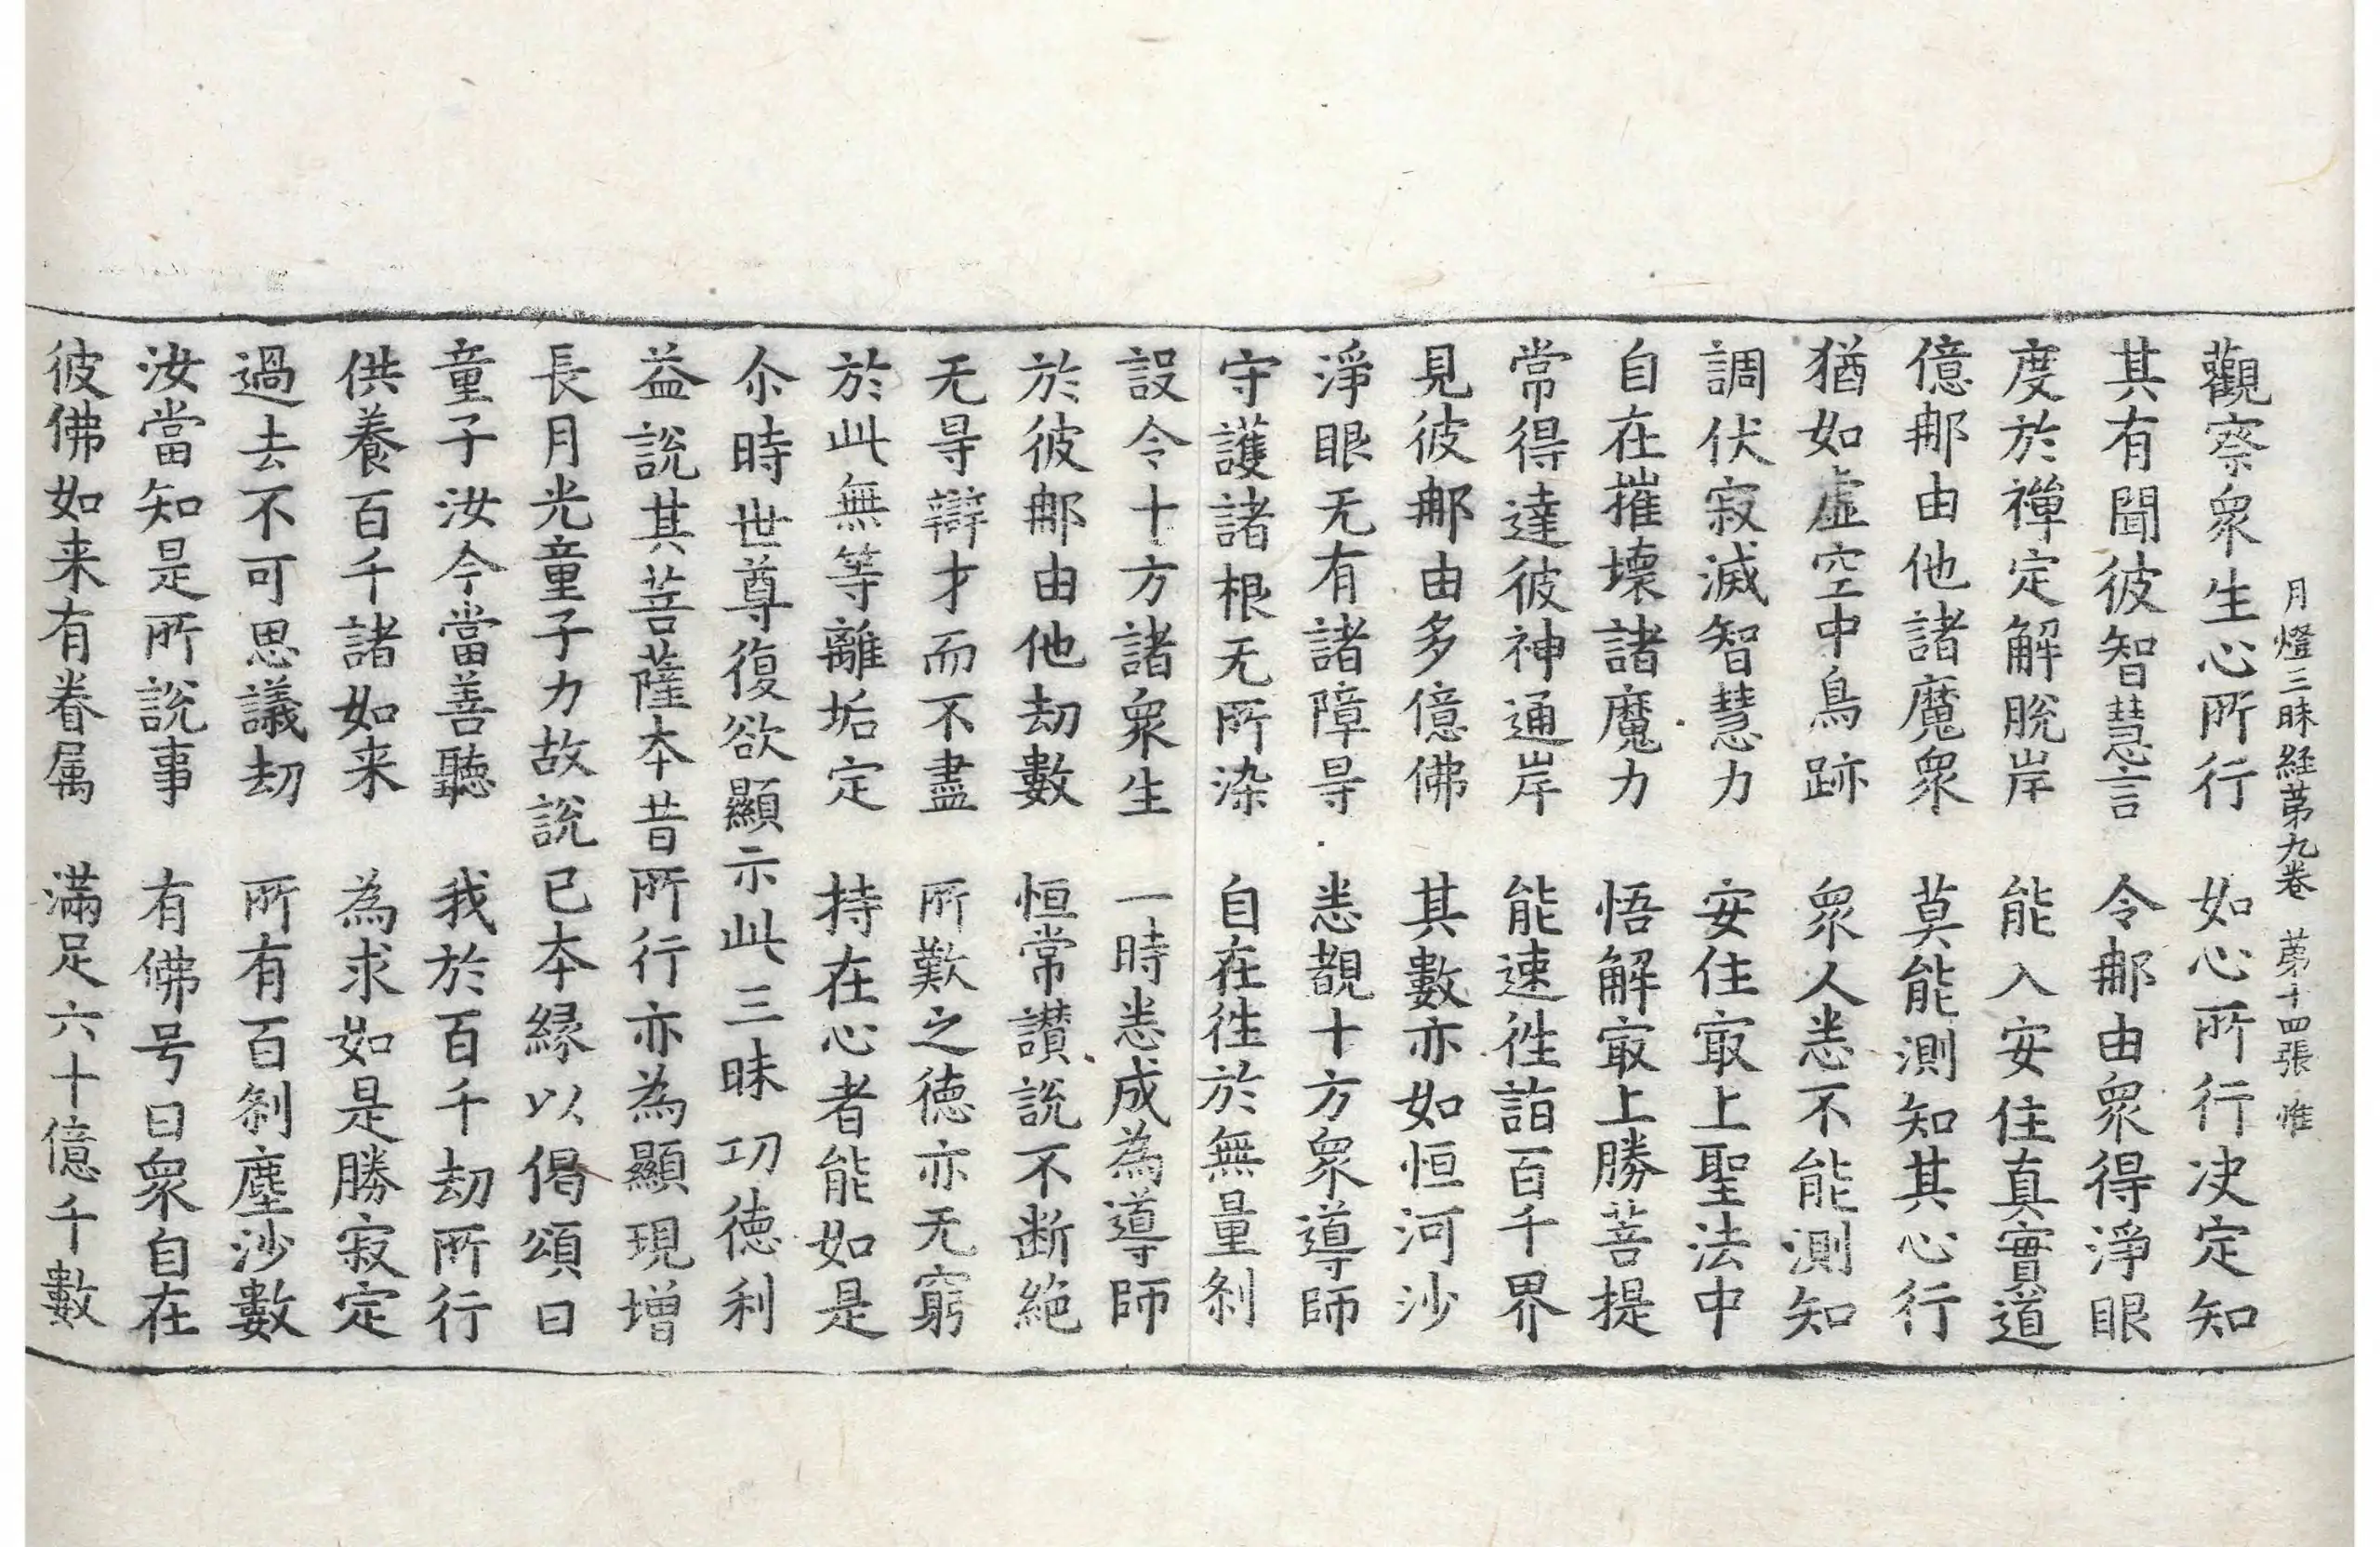 月燈三昧経苐九卷　苐十四張　惟
觀察衆生心所行　如心所行决定知
其有聞彼智慧言　令郍由衆得淨眼
度於禪定解脫岸　能入安住真實道
億郍由他諸魔衆　莫能測知其心行
猶如虛空中鳥跡　衆人悉不能測知
調伏寂滅智慧力　安住㝡上聖法中
自在摧壞諸魔力　悟解㝡上勝菩提
常得達彼神通岸　能速徃詣百千界
見彼郍由多億佛　其數亦如恒河沙
淨眼无有諸障㝵　悉覩十方衆導師
守護諸根无所染　自在徃於無量刹
設令十方諸衆生　一時悉成為導師
於彼郍由他劫數　恒常讃說不断絶
无㝵辯才而不盡　所歎之德亦无窮
於此無等離垢定　持在心者能如是
尒時世尊復欲顯示此三昧功德利
益說其菩薩本昔所行亦為顯現增
長月光童子力故說已本縁以偈頌曰
童子汝今當善聽　我於百千劫所行
供養百千諸如来　為求如是勝寂定
過去不可思議劫　所有百刹塵沙數
汝當知是所說事　有佛号曰衆自在
彼佛如来有眷属　滿足六十億千數